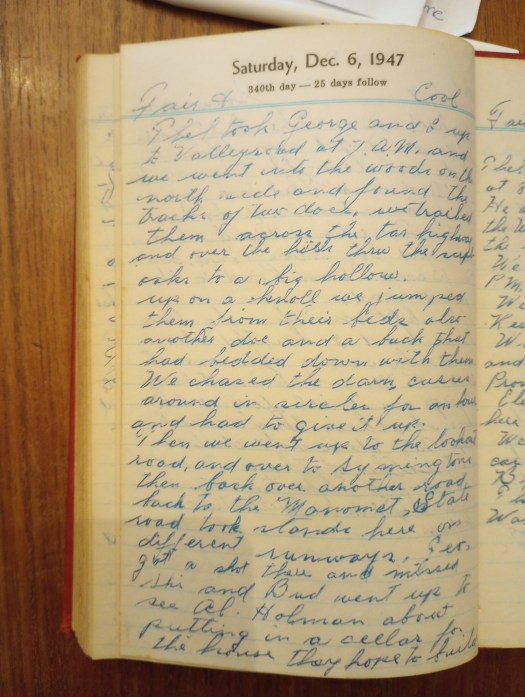 Saturday, Dec. 6, 1947
340th day — 25 days follow
Fair & Cool
Phil took George and I up
to Valleyroad at 7 A.M. and
we went into the woods on the
north side and found the
tracks of two does, we trailed
them across the tar highway
and over the hills thru the
oaks to a big hollow.
up on a knoll we jumped
them from their beds also
another doe and a buck that
had bedded down with them
We chased the darn cusses
around in circles for an hour
and had to give it up.
Then we went up to the lookout
road, and over to Symington
then back over another road
back to the Manomet, State
road took stands here on
different runways, Geo.
got a shot there and missed
Shi and Bud went up to
see Al. Holman about
putting in a cellar for
the house they hope to build